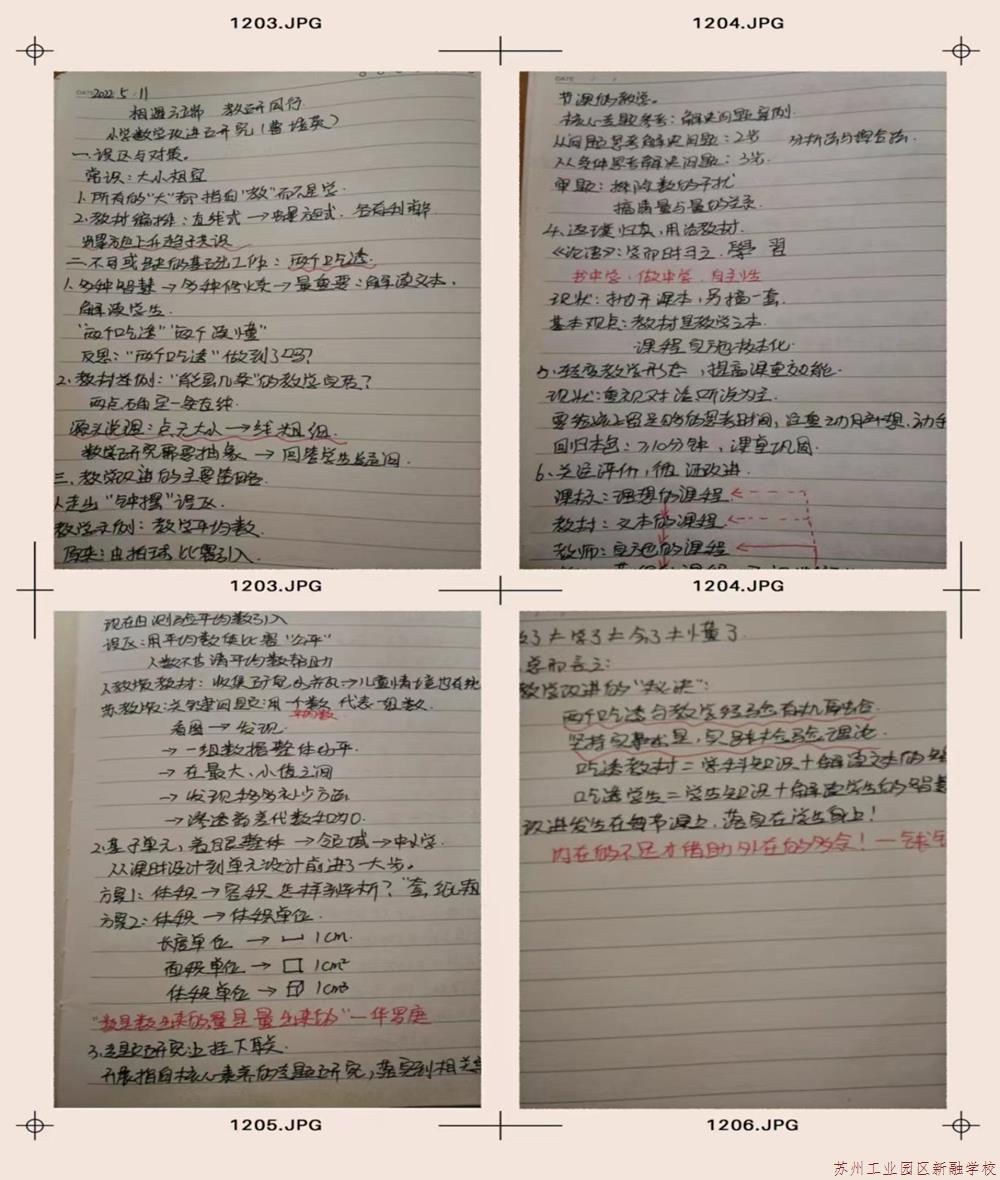 1203.JPG
1204.JPG
DATE 2022.5.11
相遇云端 教研同行
小学数学改进研究（曹培英）
一.误区与对策。
常识：大小相宜
1.所有的“大”都指向“教”而不是学.
2.教材编排：直线式→ 各有利弊
二.不可或缺的基础工作：两个吃透.
1.多种智慧→多种修炼→最重要：解读文本，
解读学生.
“两个吃透”“两个读懂”
反思：“两个吃透”做到了吗？
2.教材举例：“能画几条”的教学
两点确定一条直线
源头说理：点无大小→线无粗细.
数学研究需要抽象→回答学生追问
三.教学改进的主要策略
1.走出“钟摆”误区.
教学示例：教学平均数.
原来：由拍球比赛引入
DATE
节课的教学。
核心主题思考：解决问题案例.
从问题思考解决问题：2步 分析法与综合法.
从条件思考解决问题：3步.
审题：排除数的干扰
搞清量与量的关系
4.返璞归真，用活教材.
《论语》：学而时习之，學 習
书中学，做中学，自主性
现状：抛开课本，另搞一套.
基本观点：教材是教学之本.
课程实施校本化.
5.转变教学形态，提高课堂效能.
现状：重视对话，听说为主.
要给线上留足够的思考时间，注重动脑想，动手
回归本色：≥10分钟，课堂巩固.
6.关注评价，循证改进.
课标：理想的课程
教材：文本的课程
教师：实施的课程
1203.JPG
1204.JPG
现在由测验平均数引入
误区：用平均数使比赛“公平”
人数不等请平均数帮助
人教版教材：收集
苏教版：关键问题是用一个数代表一组数.
平均数
看图→发现
→一组数据整体水平
→在最大、小值之间
→发现移多补少方法
→渗透离差代数和为0.
2.基于单元，着眼整体→领域→中小学.
从课时设计到单元设计前进了一大步。
方案1：体积→容积 怎样剖析？
方案2：体积→体积单位.
长度单位→ 1cm.
面积单位→ 1cm²
体积单位→ 1cm³
“数是数出来的量是量出来的”—华罗庚
3.主题研究上挂下联.
开展指向核心素养的主题研究，落实到相关
教了≠学了≠会了≠懂了.
总而言之：
教学改进的“秘诀”：
两个吃透与教学经验有机融合.
坚持实事求是，实践检验理论.
吃透教材=学科知识+解读文本的智
吃透学生=学生知识+解读学生的智慧
改进发生在每节课上，落实在学生身上！
内在的不足才借助外在的多余！—钱
1205.JPG
1206.JPG
苏州工业园区新融学校